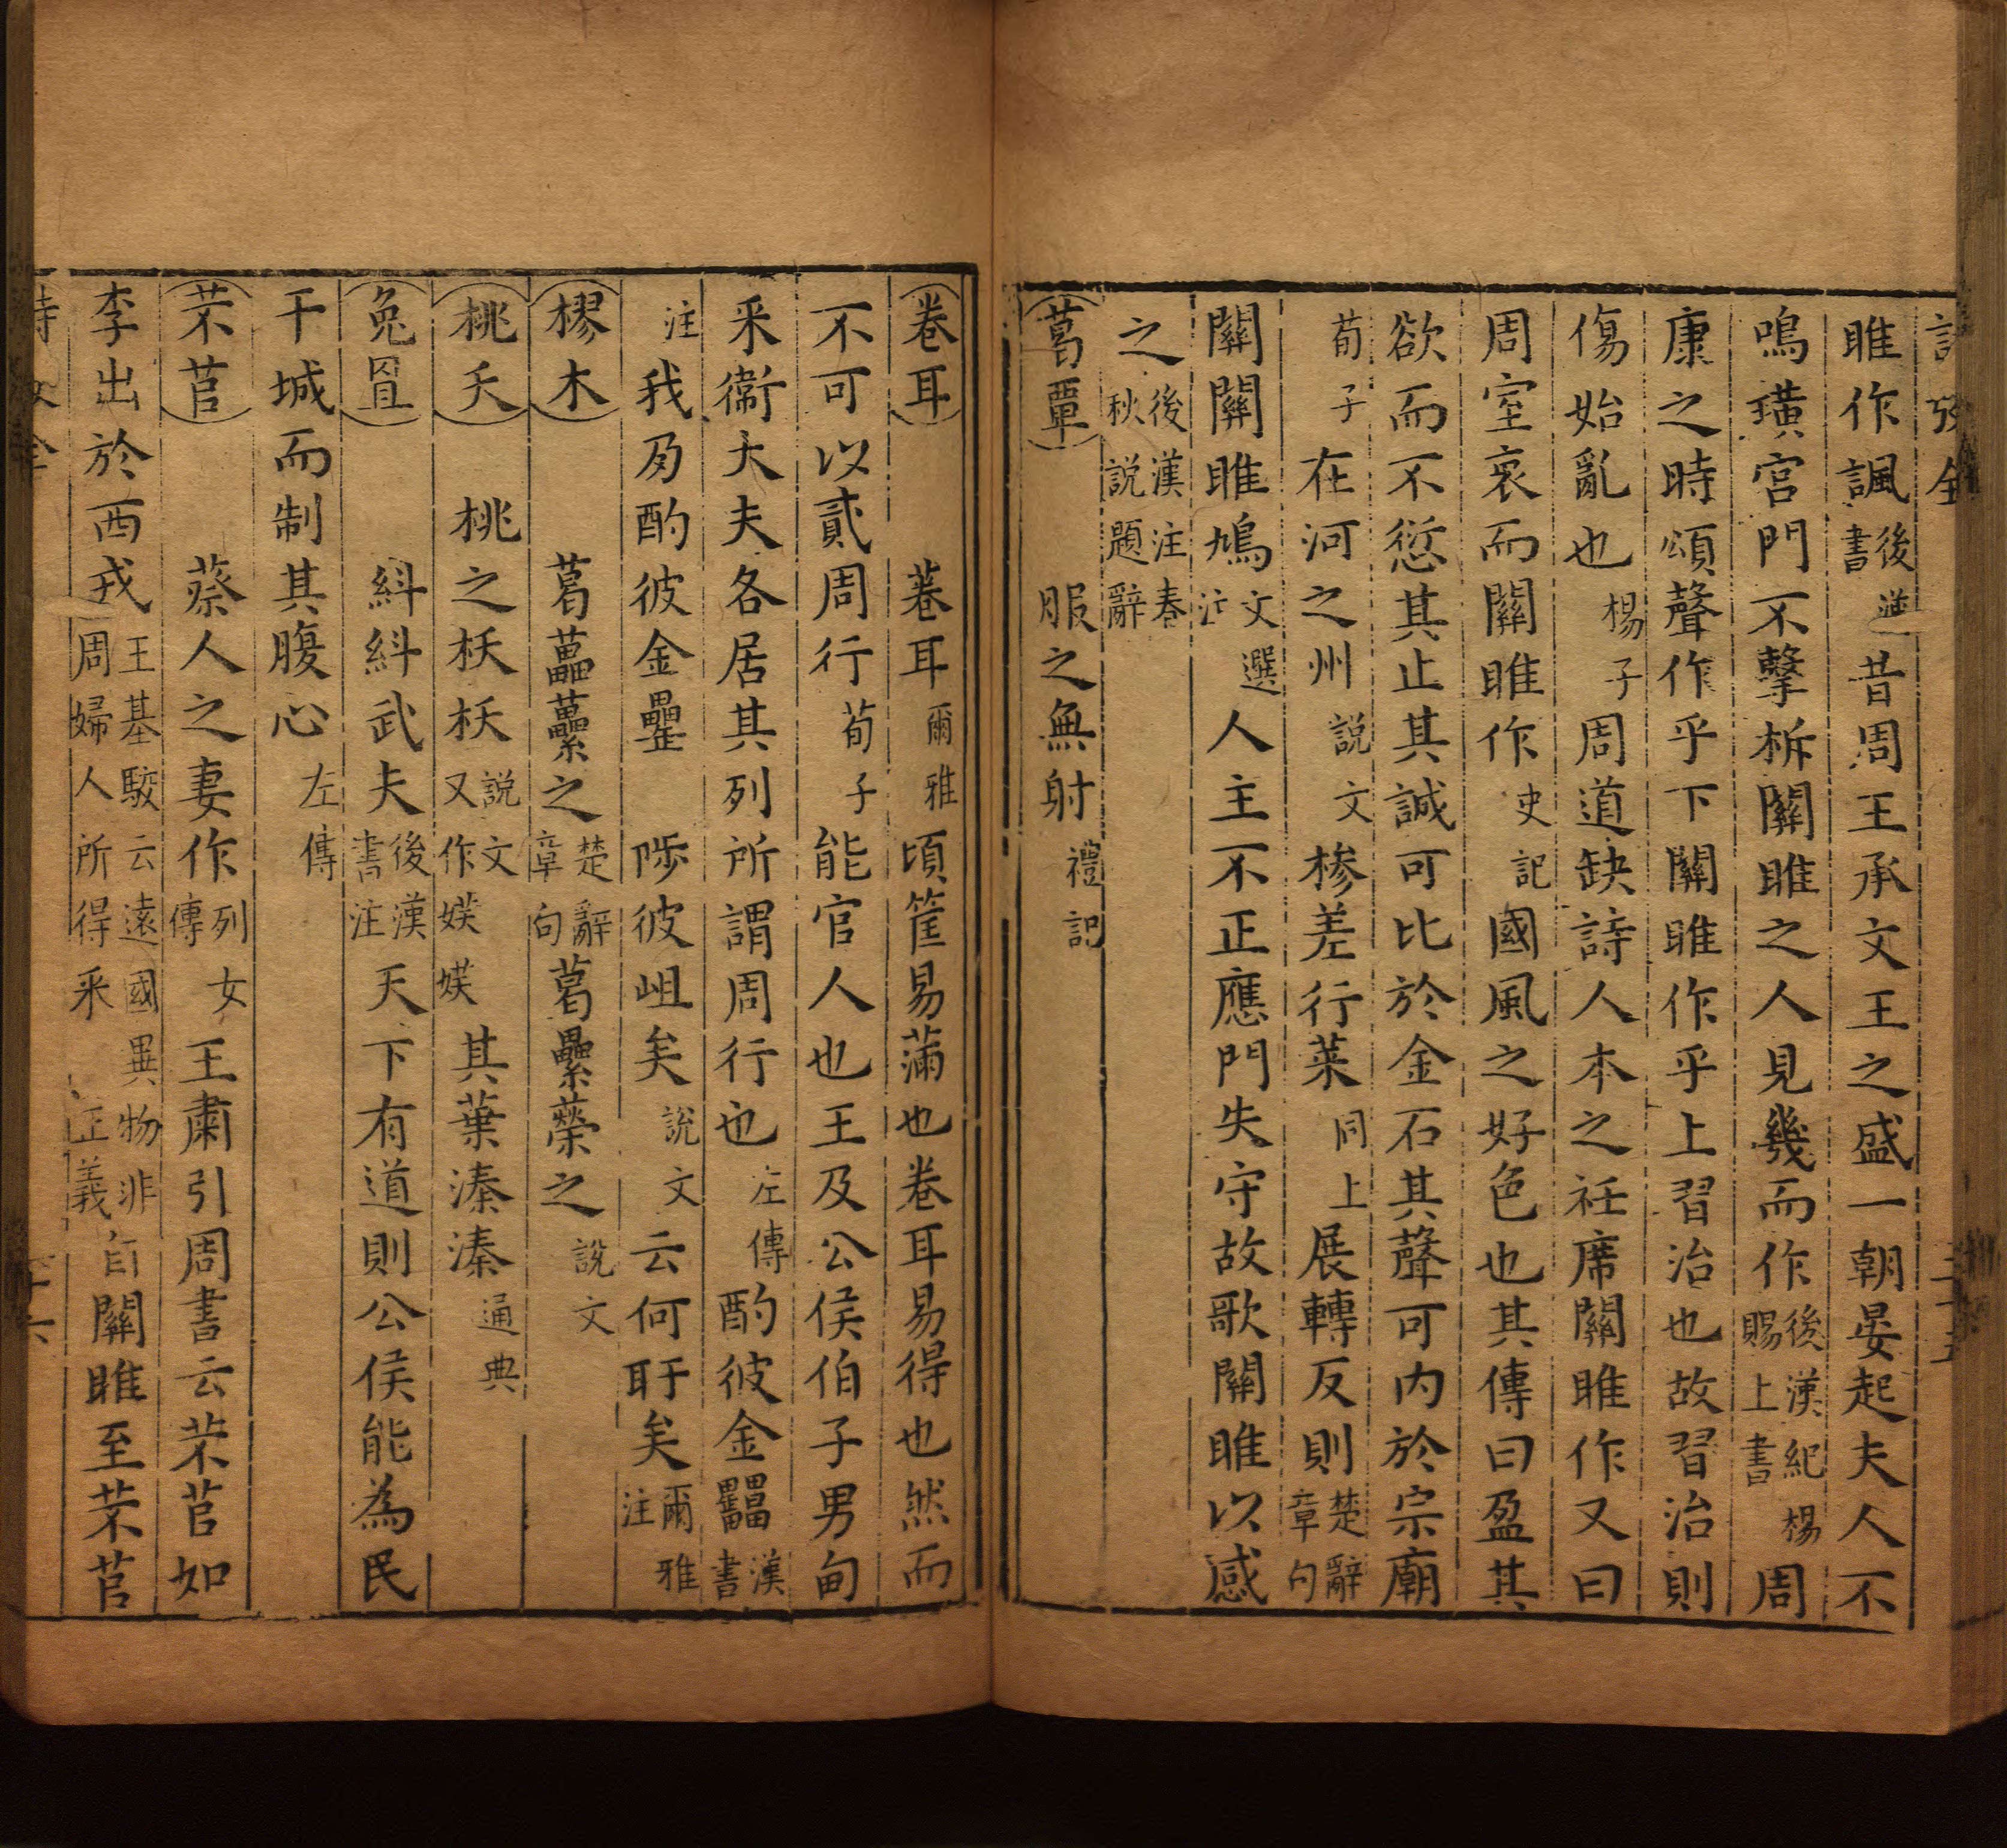 雎作諷後書 昔周王承文王之盛一朝晏起夫人不
鳴璜宮門不擊柝關雎之人見幾而作後漢紀楊賜上書周
康之時頌聲作乎下關雎作乎上習治也故習治則
傷始亂也楊子周道缺詩人本之衽席關雎作又曰
周室衰而關雎作史記國風之好色也其傳曰盈其
欲而不愆其止其誠可比於金石其聲可內於宗廟
荀子在河之州說文椮差荇菜同上展轉反則楚辭章句
關關雎鳩文選注人主不正應門失守故歌關雎以感
之後漢注春秋說題辭
葛覃 服之無射禮記
卷耳 菤耳爾雅頃筐易滿也卷耳易得也然而
不可以貳周行荀子能官人也王及公侯伯子男甸
采衛大夫各居其列所謂周行也左傳酌彼金罍漢書
注我夃酌彼金罍 陟彼岨矣說文云何盱矣爾雅注
樛木 葛藟虆之楚辭章句葛藟蘲之說文
桃夭 桃之枖枖說文又作媄媄其葉溱溱通典
兔罝 糾糾武夫後漢書注天下有道則公侯能為民
干城而制其腹心左傳
芣苢 蔡人之妻作列女傳王肅引周書云芣苢如
李出於西戎王基駮云遠國異物非周婦人所得采 正義自關雎至芣苢